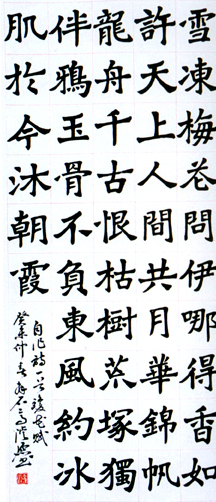 雪凍梅花問伊哪得香如
許天上人間共月華錦帆
龍舟千古恨枯樹荒塚獨
伴鴉玉骨不負東風約冰
肌於今沐朝霞
自作詩一首
癸未